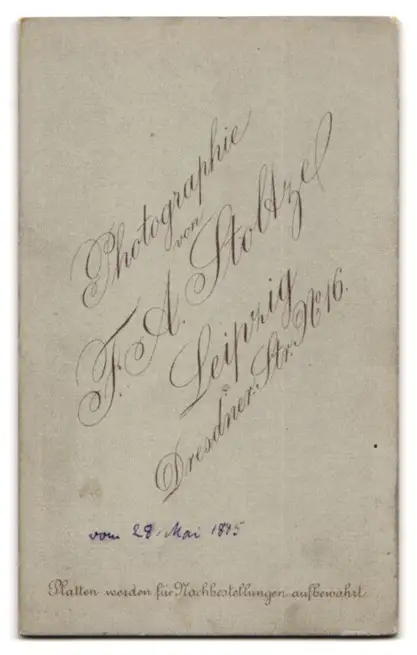 Photographie
von
F. A. Stoltze
Leipzig
Dresdner Str. No 16.
vom 28. Mai 1895
Platten werden für Nachbestellungen aufbewahrt